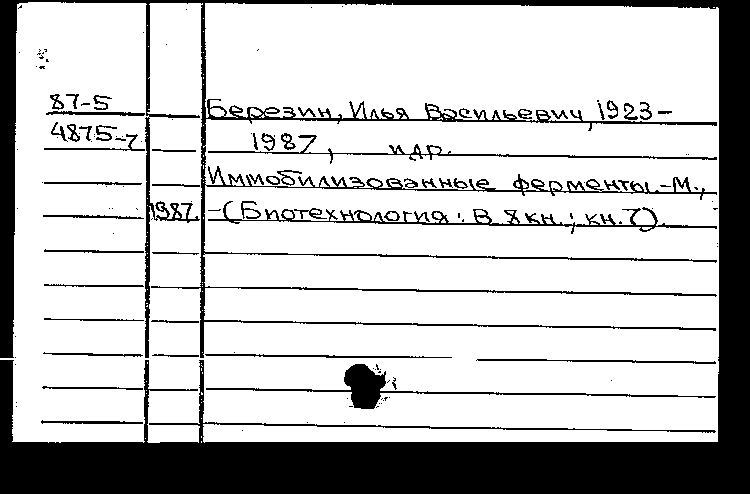 87-5 Березин, Илья Васильевич, 1923-
4875-7 1987, и др.
Иммобилизованные ферменты.-М.,
1987. -(Биотехнология: В 8 кн.; кн. 7).